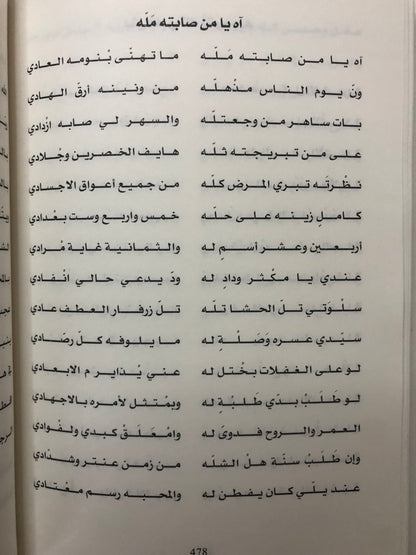 آه يا من صابته مَلّه
آه يا من صابته مَلّه    ما تهنّى بنومه العادي
ونّ يوم الناس مذهلّه    من ونينه أرّق الهادي
بات ساهر من وجعتلّه    والسهر لي صابه ازدادي
على من تبريجته ثلّه    هايف الخصرين وجلادي
نظرته تبري المرض كلّه    من جميع أعواق الاجسادي
كامل زينه على حلّه    خمس واربع وست بعْدادي
أربعين وعشر أسم له    والثمانية غاية مْرادي
عندي يا مكثر ودادٍ له    ودّ يدعي حالي انْفادي
سلّوتي تلّ الحشا تلّه    تلّ زرفار العطف عادي
سيّدي عسره وَصَلْةٍ له    ما يلوفه كلّ رصّادي
لو على الغفلات بخْتل له    عني يْذاير م الابعادي
لو طلَبْ بدّي طلبْةٍ له    وبمْتثل لأمره بالاجهادي
العمر والروح فدوى له    وامْعَلّق كبدي ولفْوادي
وإن طلَبْ سنة هل الشلّه    من زمن عنتر وشدّادي
عند يلّي كان يفطن له    والمحبه رسم معْتادي
478